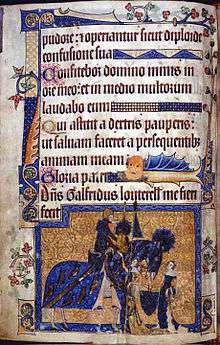 pudore: et operiantur sicut diploide
confusione sua
Confitebor domino nimis in
ore meo: et in medio multorum
laudabo eum
Qui astitit a dextris pauperis:
ut saluam faceret a persequentib
animam meam
Gloria patri
Dns Galfridus louterell me fieri
fecit